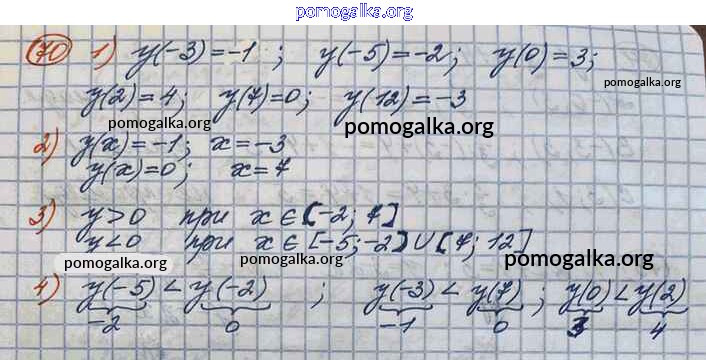 pomogalka.org
70 1) y(-3)=-1; y(-5)=-2; y(0)=3;
pomogalka.org
y(2)=4; y(7)=0; y(12)=-3
pomogalka.org
pomogalka.org
2) y(x)=-1; x=-3
y(x)=0; x=7
3) y>0 при x∈[-2; 7]
y<0 при x∈[-5;-2)∪[7; 12]
pomogalka.org
pomogalka.org
pomogalka.org
4) y(-5)<y(-2); y(-3)<y(7); y(0)<y(2)
-2 0 -1 0 3 4